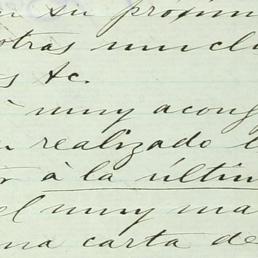 en su próxim
otras much
s &c.
a muy acong
n realizado l
r à la últim
el muy ma
na carta de